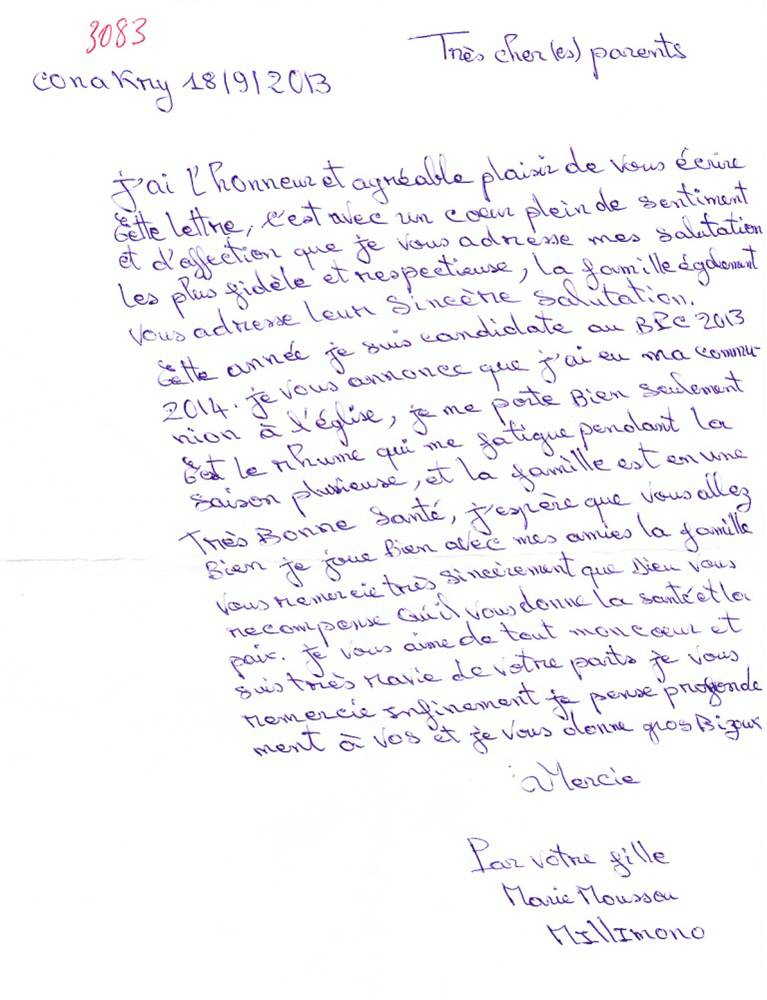 3083
Très cher(es) parents
Conakry 18/9/2013
j'ai l'honneur et agréable plaisir de vous écrire
Cette lettre, c'est avec un coeur plein de sentiment
et d'affection que je vous adresse mes salutation
les plus fidèle et respectieuse, la famille également
vous adresse leur sincère salutation.
Cette année je suis candidate au BPC 2013
2014. je vous annonce que j'ai eu ma commu-
nion à l'église, je me porte Bien seulement
C'est le rhume qui me fatigue pendant la
saison plusieuse, et la famille est en une
Très Bonne Santé, j'espère que vous allez
Bien je joue Bien avec mes amies la famille
vous remercie très sincèrement que Dieu vous
recompense qu'il vous donne la santé et la
paix. je vous aime de tout mon coeur et
suis très ravie de votre parts je vous
remercie infiniment je pense profonde
ment à vos et je vous donne gros Bizoux
Mercie
Par votre fille
Marie Moussou
Millimono